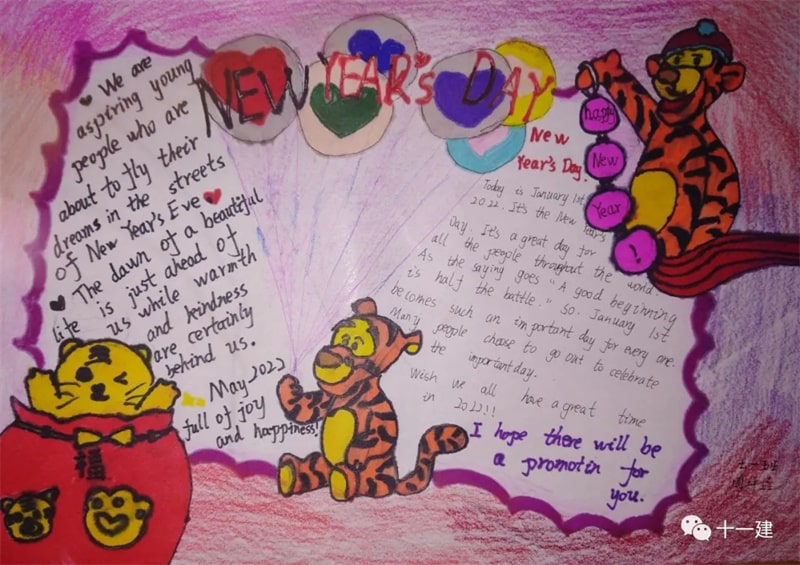 NEW YEAR'S DAY
We are
aspiring young
people who are
about to fly their
dreams in the streets
of New Year's Eve
The dawn of a beautiful
life is just ahead of
us while warmth
and kindness
are certainly
behind us.
May 2022
full of joy
and happiness!
New
Year's Day.
Today is January 1st
2022. It's the New Year's
Day. It's a great day for
all the people throughout the world.
As the saying goes "A good beginning
is half the battle." So. January 1st
becomes such an important day for every one.
Many people choose to go out to celebrate
the important day.
Wish we all have a great time
in 2022!!
I hope there will be
a promotin for
you.
happy
New
Year
!
福
十一班
十一建